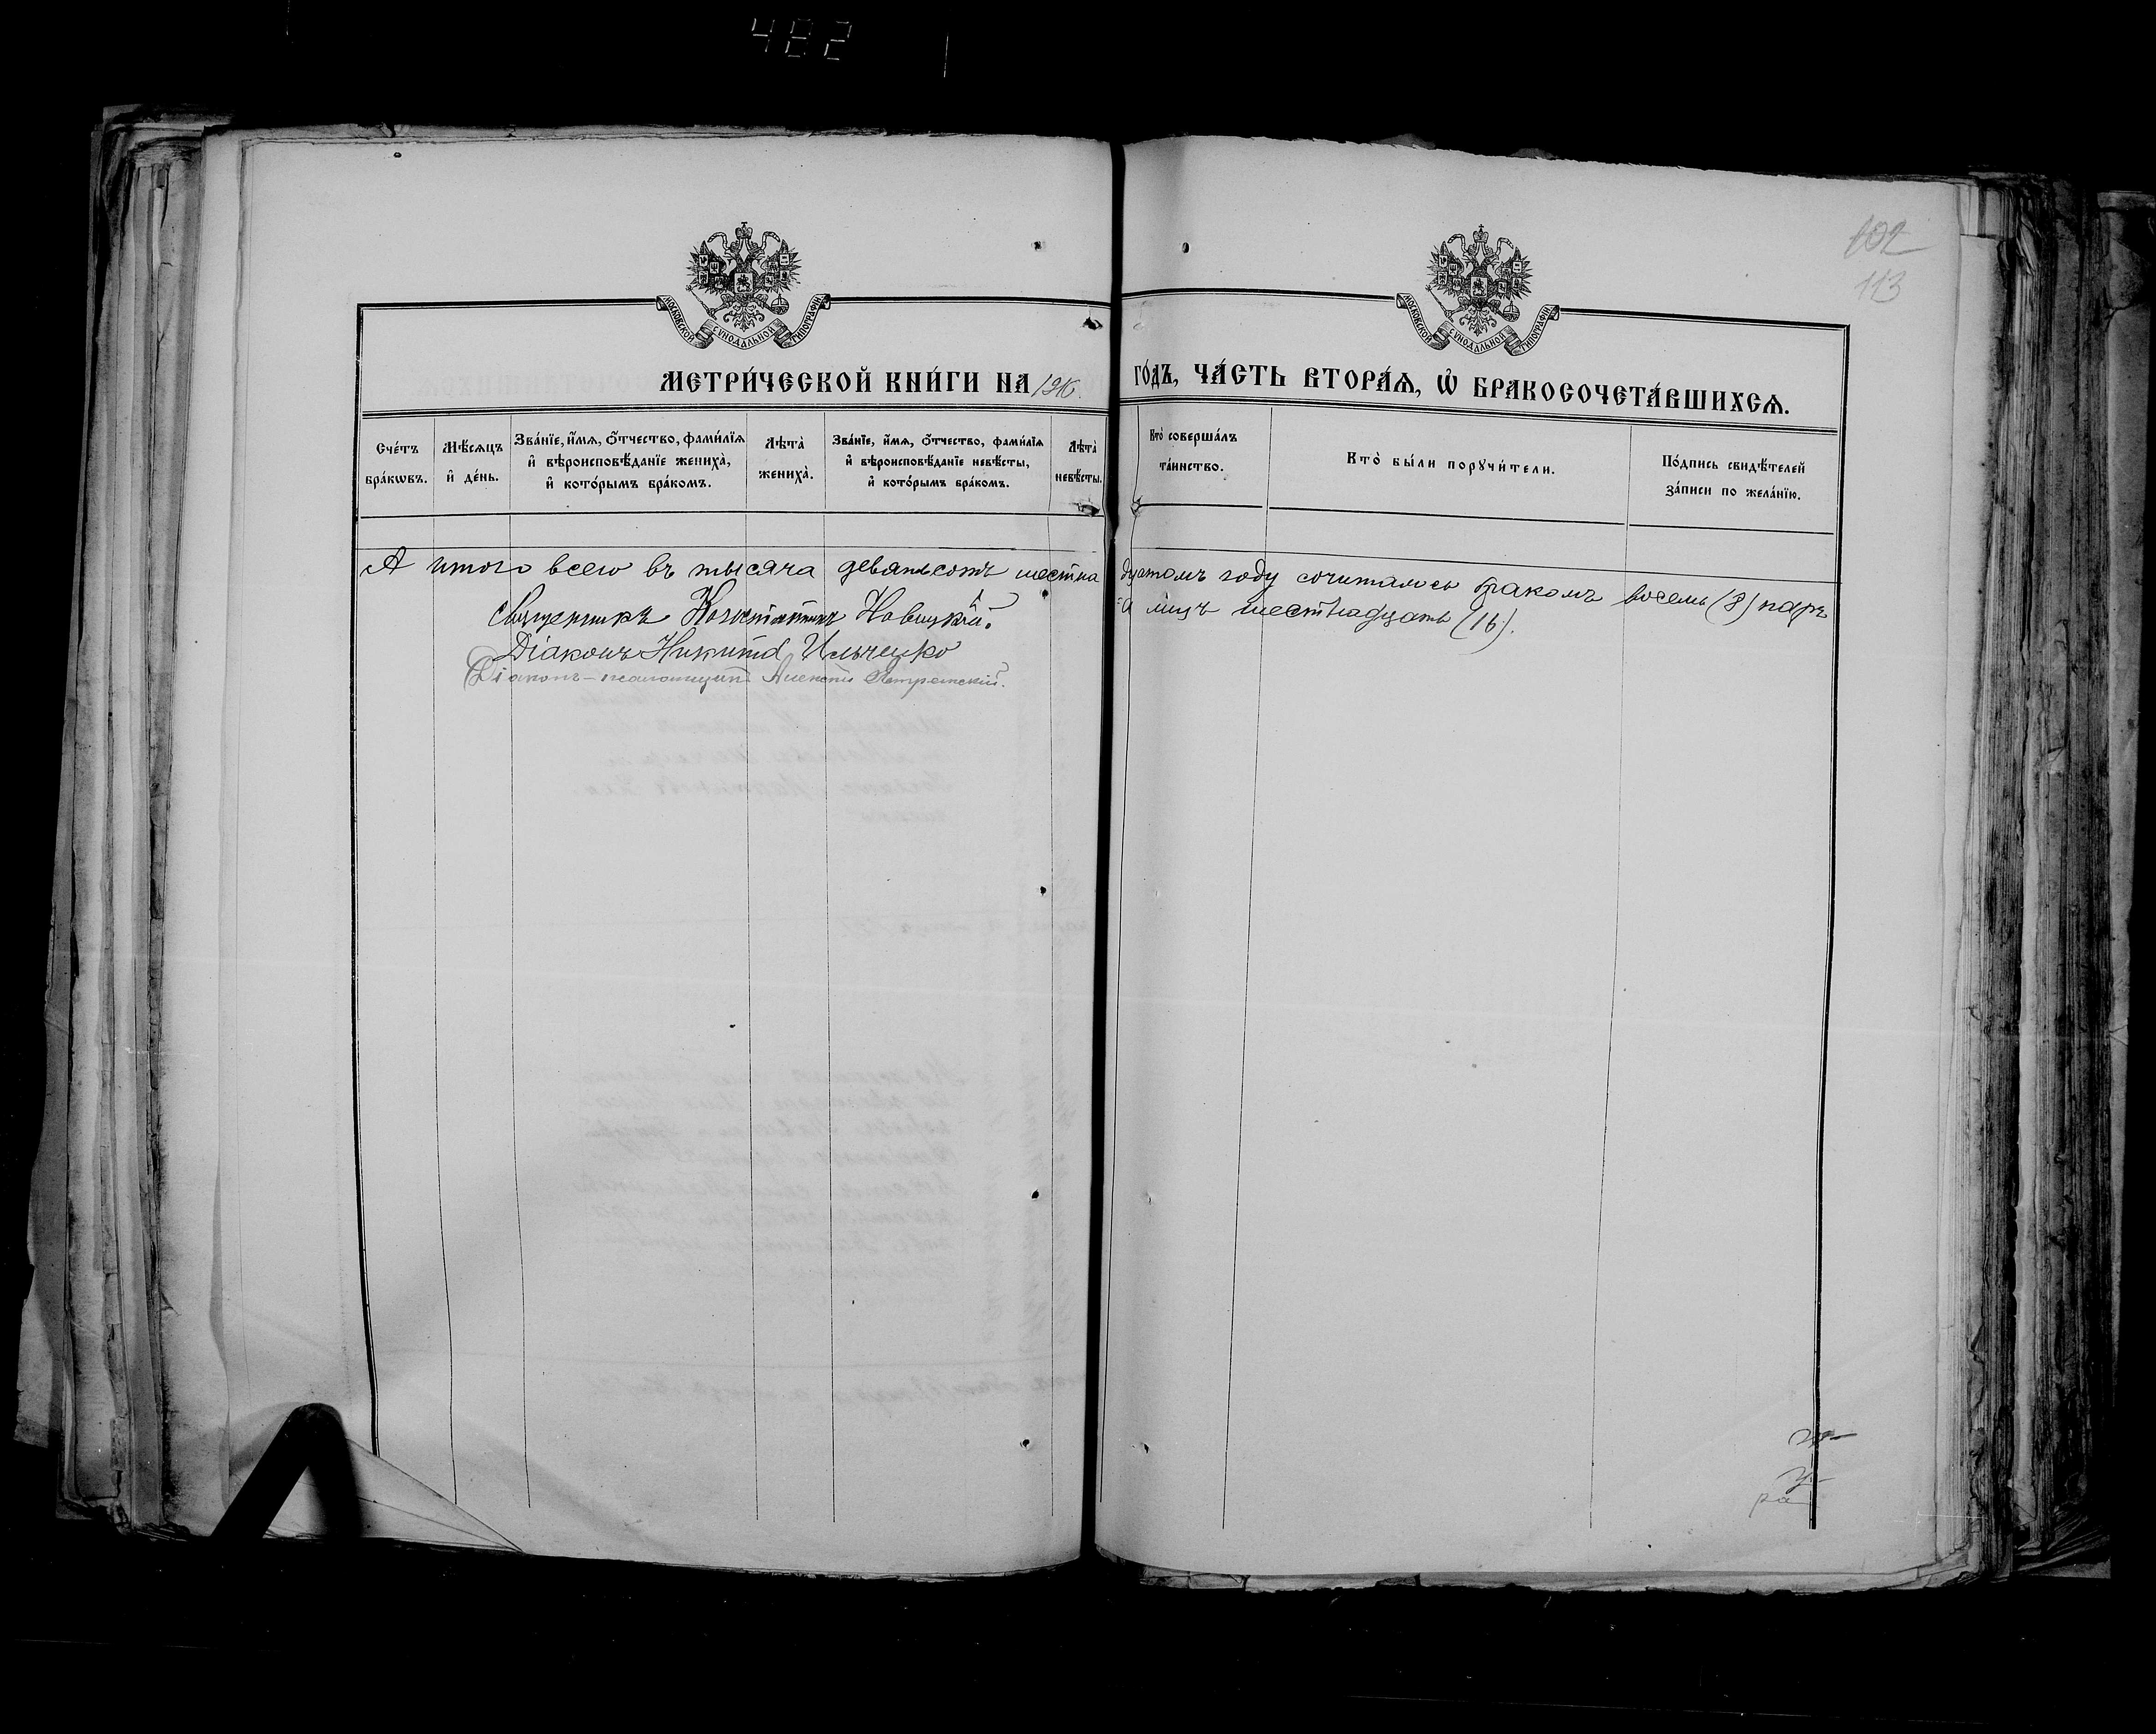 482
102
113
МОСКОВСКОЙ СУНОДАЛЬНОЙ ТИПОГРАФІИ
МОСКОВСКОЙ СУНОДАЛЬНОЙ ТИПОГРАФІИ
МЕТРИ́ЧЕСКОЙ КНИ́ГИ НА 1916 ГО́ДЪ, ЧА́СТЬ ВТОРА́Ѧ, Ѡ҆ БРАКОСОЧЕТА́ВШИХСѦ.
Сче́тъ бра́кѡвъ.
Мѣ́сѧцъ и҆ де́нь.
Зва́нїе, и҆́мѧ, ѻ҆́тчество, фами́лїѧ и҆ вѣроисповѣ́данїе жениха̀, и҆ кото́рымъ бра́комъ.
Лѣ́та̀ жениха̀.
Зва́нїе, и҆́мѧ, ѻ҆́тчество, фами́лїѧ и҆ вѣроисповѣ́данїе невѣ́сты, и҆ кото́рымъ бра́комъ.
Лѣ́та̀ невѣ́сты.
Кто̀ соверша́лъ та́инство.
Кто̀ бы́ли порꙋчи́тели.
По́дпись свидѣ́телей за́писи по жела́нїю.
А итого всего въ тысяча девятьсотъ шестна дцатомъ году сочиталось бракомъ восемь (8) паръ
а лицъ шестнадцать (16).
Священникъ Константинъ Новицкій.
Діаконъ Никита Ильченко
Діаконъ-псаломщикъ Алексѣй